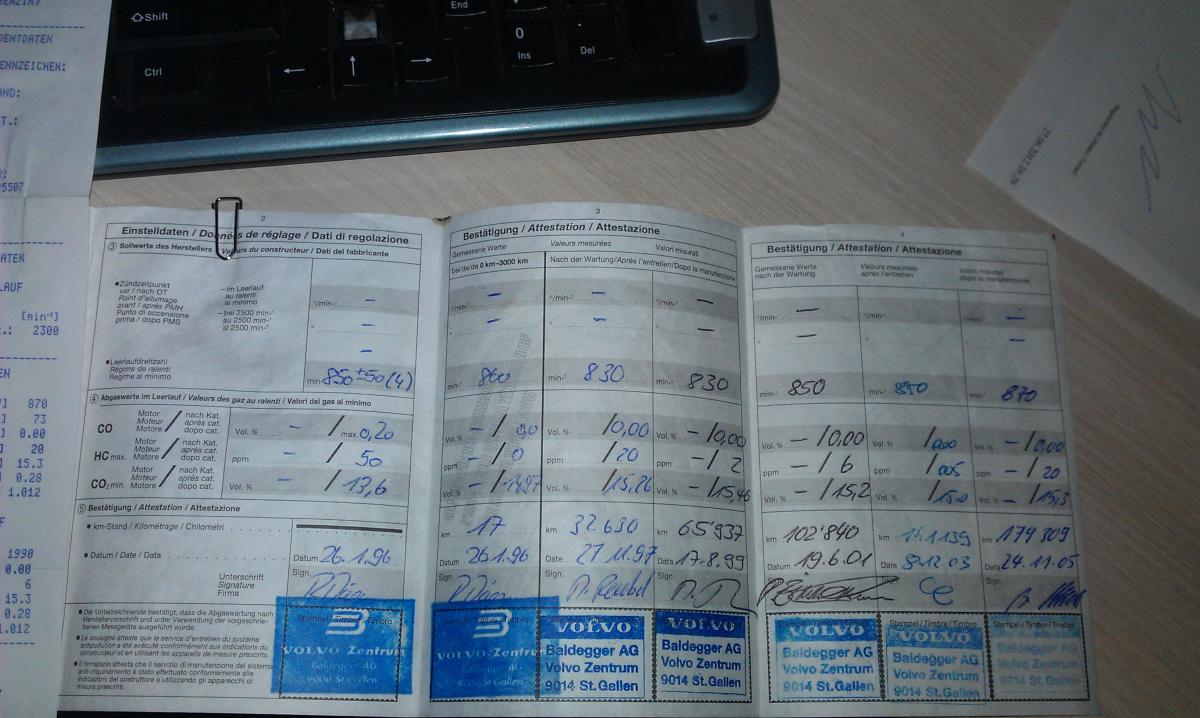 Shift
End
0
Ins
.
Del
Ctrl
←
↑
→
ENNZEICHEN:
5507
[min⁻¹]
2300
870
73
0.00
20
15.3
0.28
1.012
1990
0.00
6
15.3
0.28
27.06.2012
2
Einstelldaten / Données de réglage / Dati di regolazione
③ Sollwerte des Herstellers / Valeurs du constructeur / Dati del fabbricante
• Zündzeitpunkt
vor / nach OT
Point d'allumage
avant / après PMH
Punto di accensione
prima / dopo PMS
– im Leerlauf
au ralenti
al minimo
– bei 2500 min⁻¹
au 2500 min⁻¹
al 2500 min⁻¹
°/min⁻¹ –
° –
–
• Leerlaufdrehzahl
Régime de ralenti
Regime al minimo
min⁻¹ 850±50(4)
④ Abgaswerte im Leerlauf / Valeurs des gaz au ralenti / Valori dei gas al minimo
CO Motor Moteur Motore / nach Kat. après cat. dopo cat. Vol. % – / max. 0,20
HC max. Motor Moteur Motore / nach Kat. après cat. dopo cat. ppm – / 50
CO₂ min. Motor Moteur Motore / nach Kat. après cat. dopo cat. Vol. % – / 13,6
⑤ Bestätigung / Attestation / Attestazione
• km-Stand / Kilométrage / Chilometri
• Datum / Date / Data
Datum 26.1.96
Unterschrift
Signature
Firma
Sign.
• Der Unterzeichnende bestätigt, dass die Abgaswartung nach
Herstellervorschrift und unter Verwendung der vorgeschrie-
benen Messgeräte ausgeführt wurde.
• Le soussigné atteste que le service d'entretien du système
antipollution a été exécuté conformément aux indications du
constructeur et en utilisant les appareils de mesure prescrits.
• Il firmatario attesta che il servizio di manutenzione del sistema
antinquinamento è stato effettuato conformemente alle
indicazioni del costruttore e utilizzando gli apparecchi di
misura prescritti.
Stempel / Timbre / Timbro
VOLVO Zentrum
Baldegger AG
9000 St. Gallen
3
Bestätigung / Attestation / Attestazione
Gemessene Werte Valeurs mesurées Valori misurati
bei/de/da 0 km–3000 km Nach der Wartung/Après l'entretien/Dopo la manutenzione
°/min⁻¹ – °/min⁻¹ – °/min⁻¹ –
° – ° – ° –
min⁻¹ 860 min⁻¹ 830 min⁻¹ 830
Vol. % – / 0,0 Vol. % / 0,00 Vol. % – / 0,00
ppm – / 0 ppm / 20 ppm – / 2
Vol. % – / 14,97 Vol. % / 15,26 Vol. % – / 15,46
km 17 km 32 630 km 65'937
Datum 26.1.96 Date 27.11.97 Data 17.8.99
Sign. Sign. Sign.
Stempel / Timbre / Timbro
VOLVO Zentrum
Baldegger AG
9000 St. Gallen
VOLVO
Baldegger AG
Volvo Zentrum
9014 St. Gallen
VOLVO
Baldegger AG
Volvo Zentrum
9014 St. Gallen
4
Bestätigung / Attestation / Attestazione
Gemessene Werte
nach der Wartung
Valeurs mesurées
après l'entretien
Valori misurati
dopo la manutenzione
°/min⁻¹ – °/min⁻¹ °/min⁻¹ –
° – ° ° –
min⁻¹ 850 min⁻¹ 850 min⁻¹ 870
Vol. % – / 0,00 Vol. % / 0,00 Vol. % – / 0,00
ppm – / 6 ppm / 005 ppm – / 20
Vol. % – / 15,2 Vol. % / 15.0 Vol. % – / 15,3
km 102'840 km 141139 km 179 309
Datum 19.6.01 Date 8.12.03 Data 24.11.05
Sign. Sign. Sign.
VOLVO
Baldegger AG
Volvo Zentrum
9014 St. Gallen
Stempel / Timbre / Timbro
VOLVO
Baldegger AG
Volvo Zentrum
9014 St. Gallen
Stempel / Timbre / Timbro